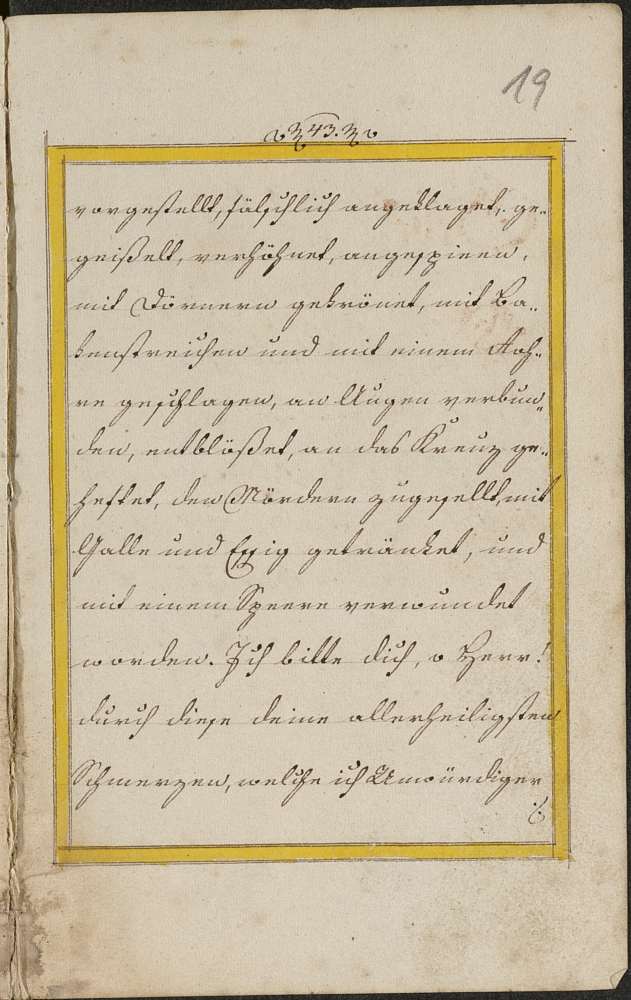 19
43.
vorgestellt, fälschlich angeklaget, ge-
geißelt, verhöhnet, angespieen,
mit Dörnern gekrönet, mit Ba-
kenstreichen und mit einem Roh-
re geschlagen, an Augen verbun-
den, entblößet, an das Kreuz ge-
heftet, den Mördern zugesellt, mit
Galle und Essig getränket, und
mit einem Speere verwundet
worden. Ich bitte dich, o Herr!
durch diese deine allerheiligsten
Schmerzen, welche ich Unwürdiger